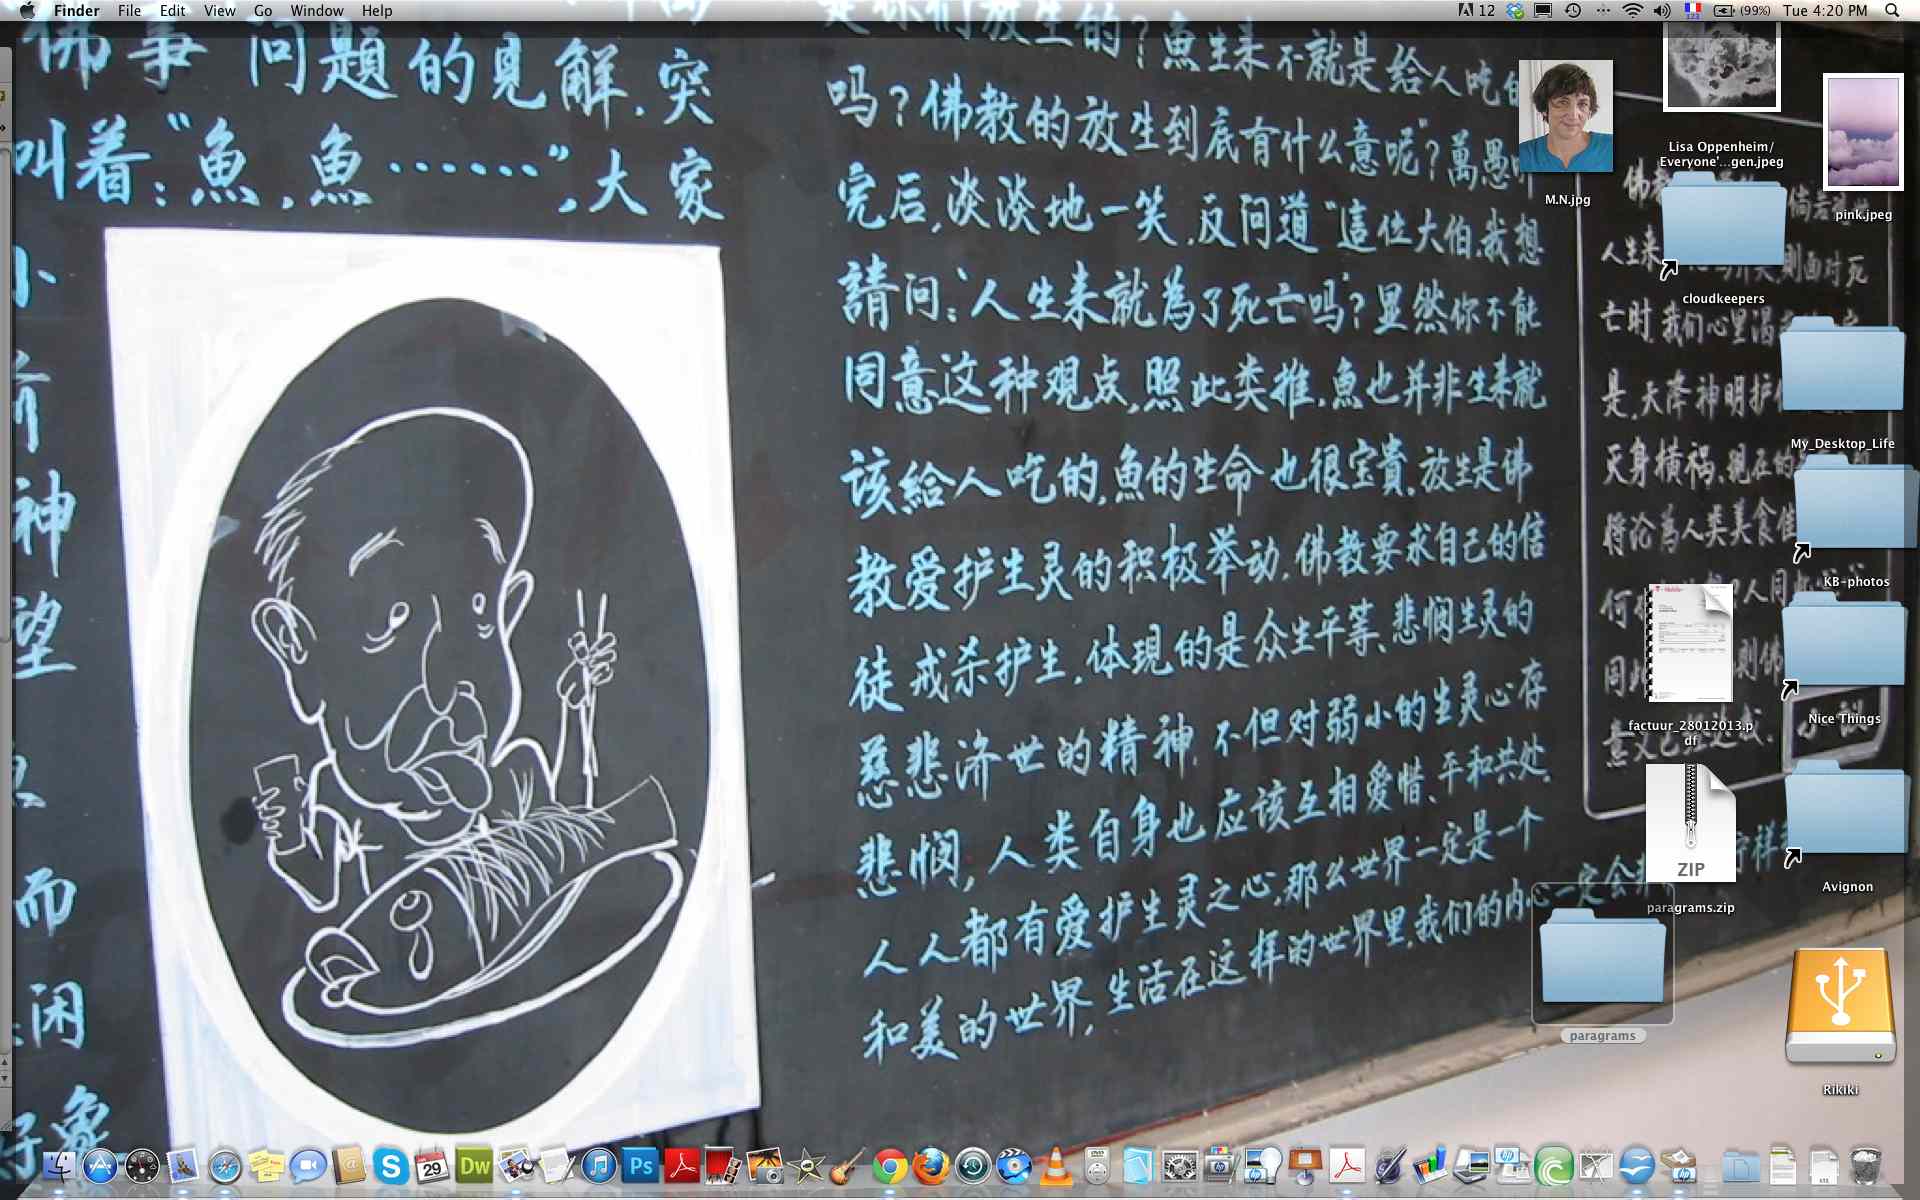 Finder File Edit View Go Window Help
12
(99%) Tue 4:20 PM
佛事 问題的见解.突
叫着:“魚,魚……”,大家
小
前
神
望
而
闲
好象
是你们放生的?魚生来不就是给人吃的
吗?佛教的放生到底有什么意呢”?萬愚
完后,淡淡地一笑.反问道“這位大伯,我想
請问:“人生来就為了死亡吗”?显然你不能
同意这种观点,照此类推.魚也并非生来就
该給人吃的,魚的生命也很宝貴.放生是佛
教爱护生灵的积极举动.佛教要求自己的信
徒戒杀护生,体现的是众生平等、悲悯生灵的
慈悲济世的精神.不但对弱小的生灵心存
悲悯,人类自身也应该互相爱惜、平和共处.
人人都有爱护生灵之心,那么世界一定是一个
和美的世界,生活在这样的世界里.我们的内心一定会
佛教 倘若
人生来 則面对死
亡时.我们心里
是,天降神明护
天身横祸.现在的
将沦為人类美食
何 人同
同此 則佛
意义已经达成.
小说
M.N.jpg
Lisa Oppenheim/
Everyone'...gen.jpeg
pink.jpeg
cloudkeepers
My_Desktop_Life
KB-photos
factuur_28012013.p
df
Nice Things
ZIP
paragrams.zip
Avignon
paragrams
Rikiki
29
Dw
Ps